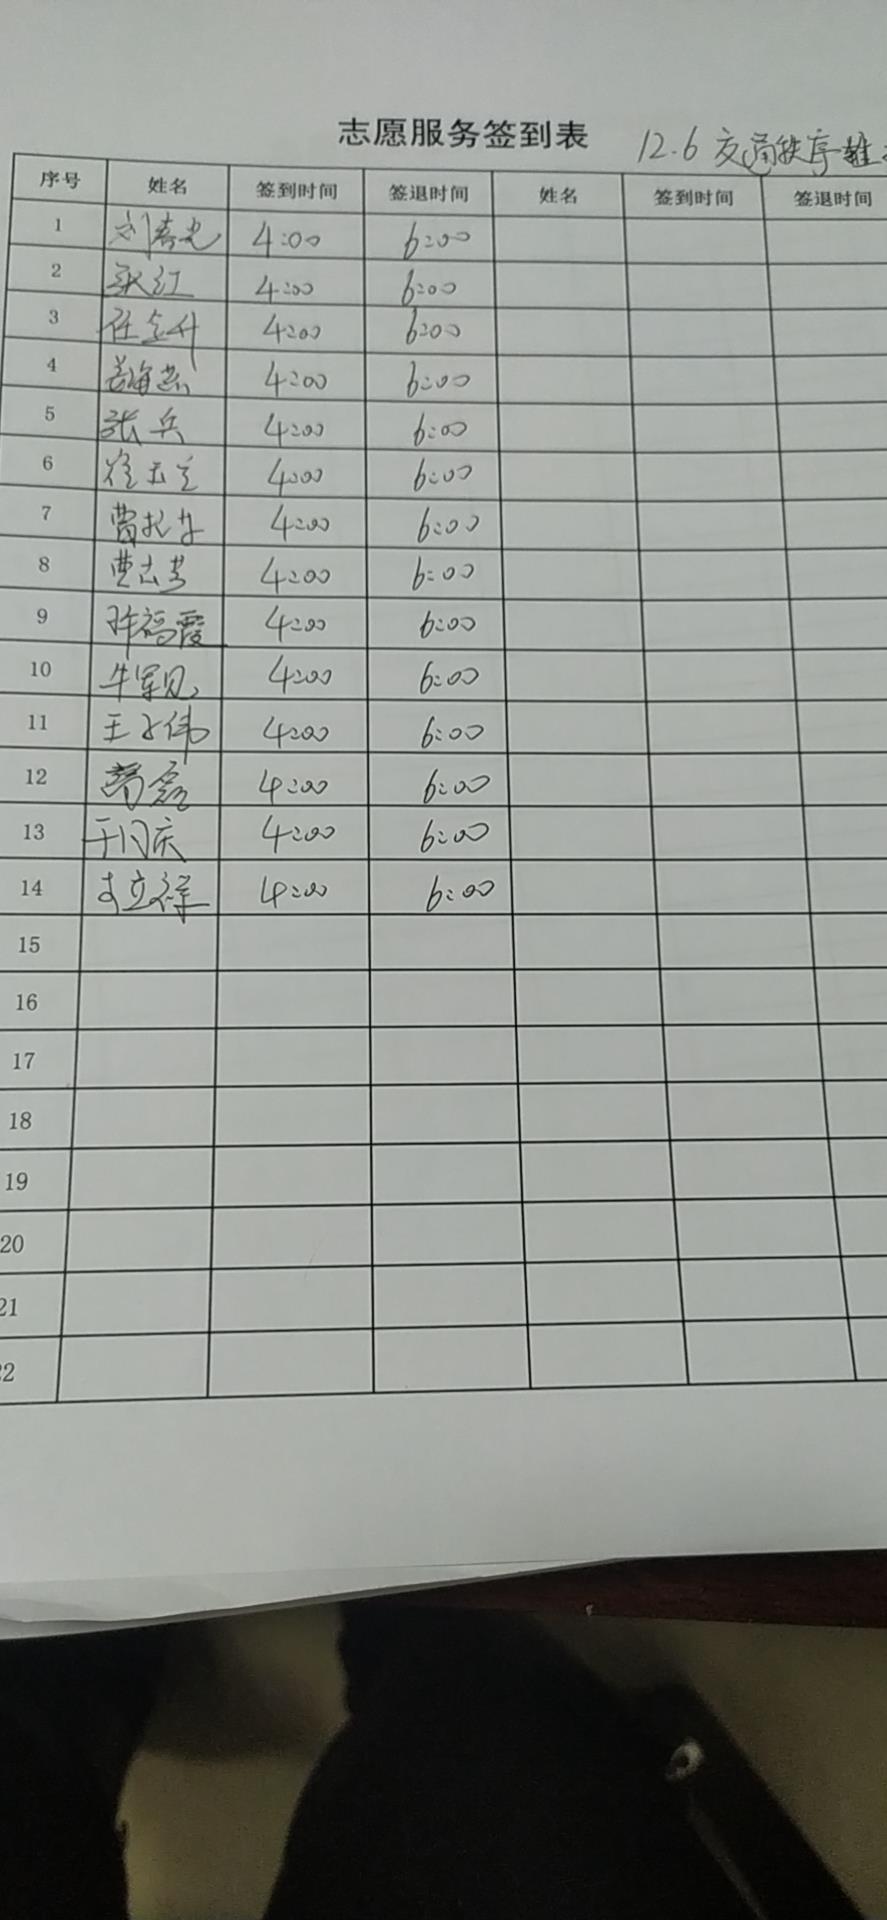 志愿服务签到表
12.6 交通秩序维
序号 姓名 签到时间 签退时间 姓名 签到时间 签退时间
1 刘春光 4:00 6:00
2 张红 4:00 6:00
3 任 4:00 6:00
4 姜海燕 4:00 6:00
5 张兵 4:00 6:00
6 徐玉兰 4:00 6:00
7 4:00 6:00
8 曹志芳 4:00 6:00
9 许福霞 4:00 6:00
10 牛军见 4:00 6:00
11 王子伟 4:00 6:00
12 4:00 6:00
13 于闪庆 4:00 6:00
14 立禄 4:00 6:00
15
16
17
18
19
20
21
22